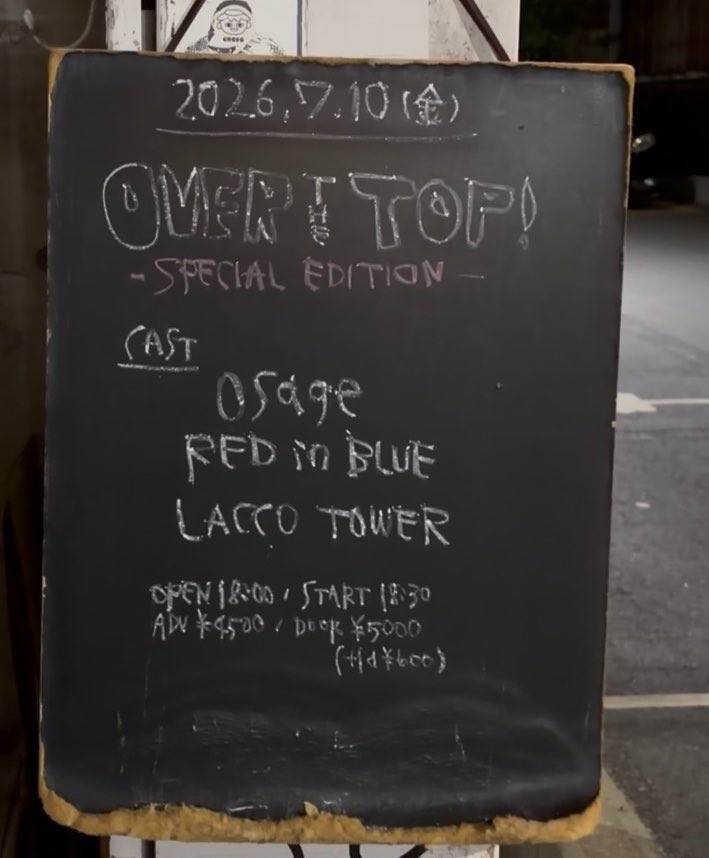 2026.7.10(金)
OVER THE TOP!
-SPECIAL EDITION-
CAST
Osage
RED in BLUE
LACCO TOWER
OPEN 18:00 / START 18:30
ADV ¥4500 / DOOR ¥5000
(+1d ¥600)